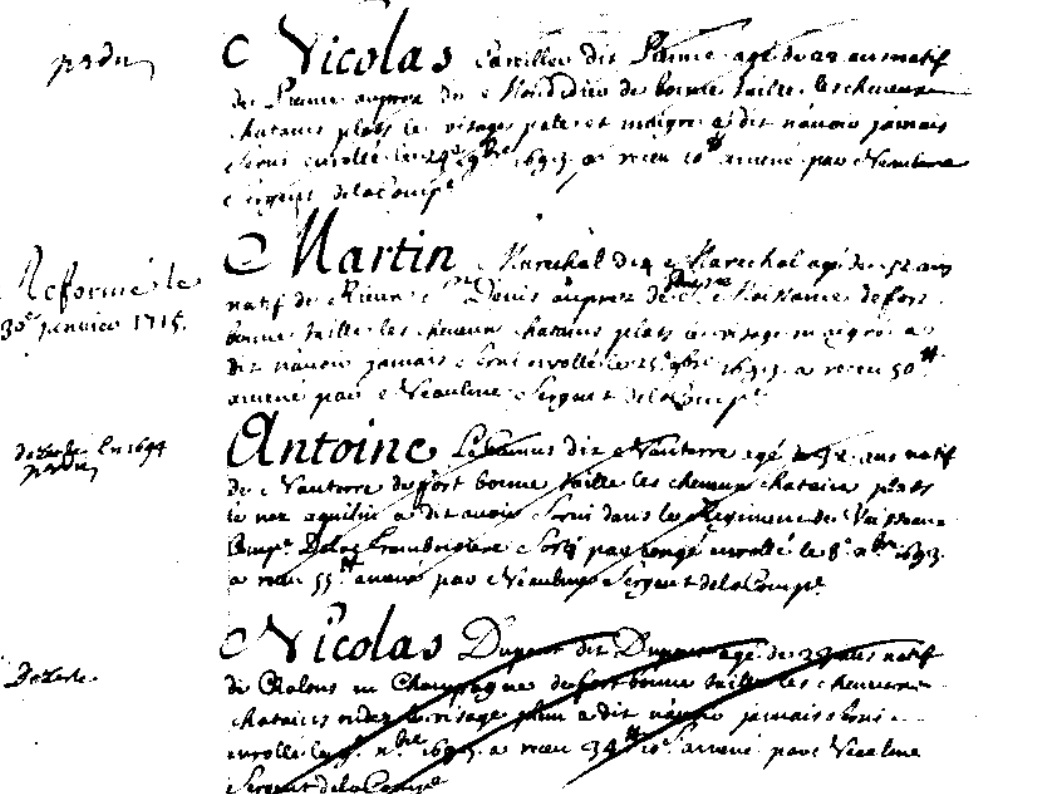 Nicolas dit agé de 22 ans natif
de aupres de de bonne taille les cheveux
chatains plats le visage pale et maigre a dit n'avoir jamais
servi enrollé le 29e 9bre 1693 a receu 10# amené par Neauline
Sergent dela Compe
Reformé le
30e janvier 1715.
Martin Marechal dit Marechal agé de 52 ans
natif de St Denis aupres de de fort
bonne taille les cheveux chatains plats le visage maigre a
dit n'avoir jamais servi enrollé le 25e 9bre 1693 a receu 50#
amené par Neauline Sergent dela Compe
dezerté en 1694
Antoine Le Camus dit Nanterre agé de ans natif
de Nanterre de fort bonne taille les cheveux chatains plats
le nez aquilin a dit avoir servi dans le Regiment de Vaisseaux
Compe Dela sorti par congé enrollé le 8e xbre 1693
a receu 55# amené par Neauline Sergent dela Compe
Dezerté.
Nicolas Dupont dit Dupont agé de ans natif
de Chalons en Champagne de fort bonne taille les cheveux
chatains le visage plein a dit n'avoir jamais servi
enrollé le xbre 1693 a receu 34# 10s amené par Neauline
Sergent dela Compe